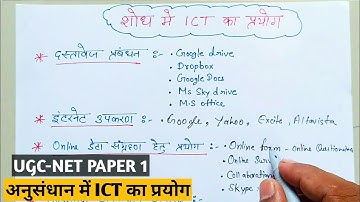 शोध में ICT का प्रयोग
* दस्तावेज प्रबंधन :- • Google drive
• Dropbox
• Google Docs
• Ms Sky drive
• M.S office
* इंटरनेट उपकरण :- • Google, Yahoo, Excite, Altavista
* Online डेटा संग्रहण हेतु प्रयोग :- • Online form - Online Questionnaire
• Online Sur
• Collaboration
• Skype
UGC-NET PAPER 1
अनुसंधान में ICT का प्रयोग